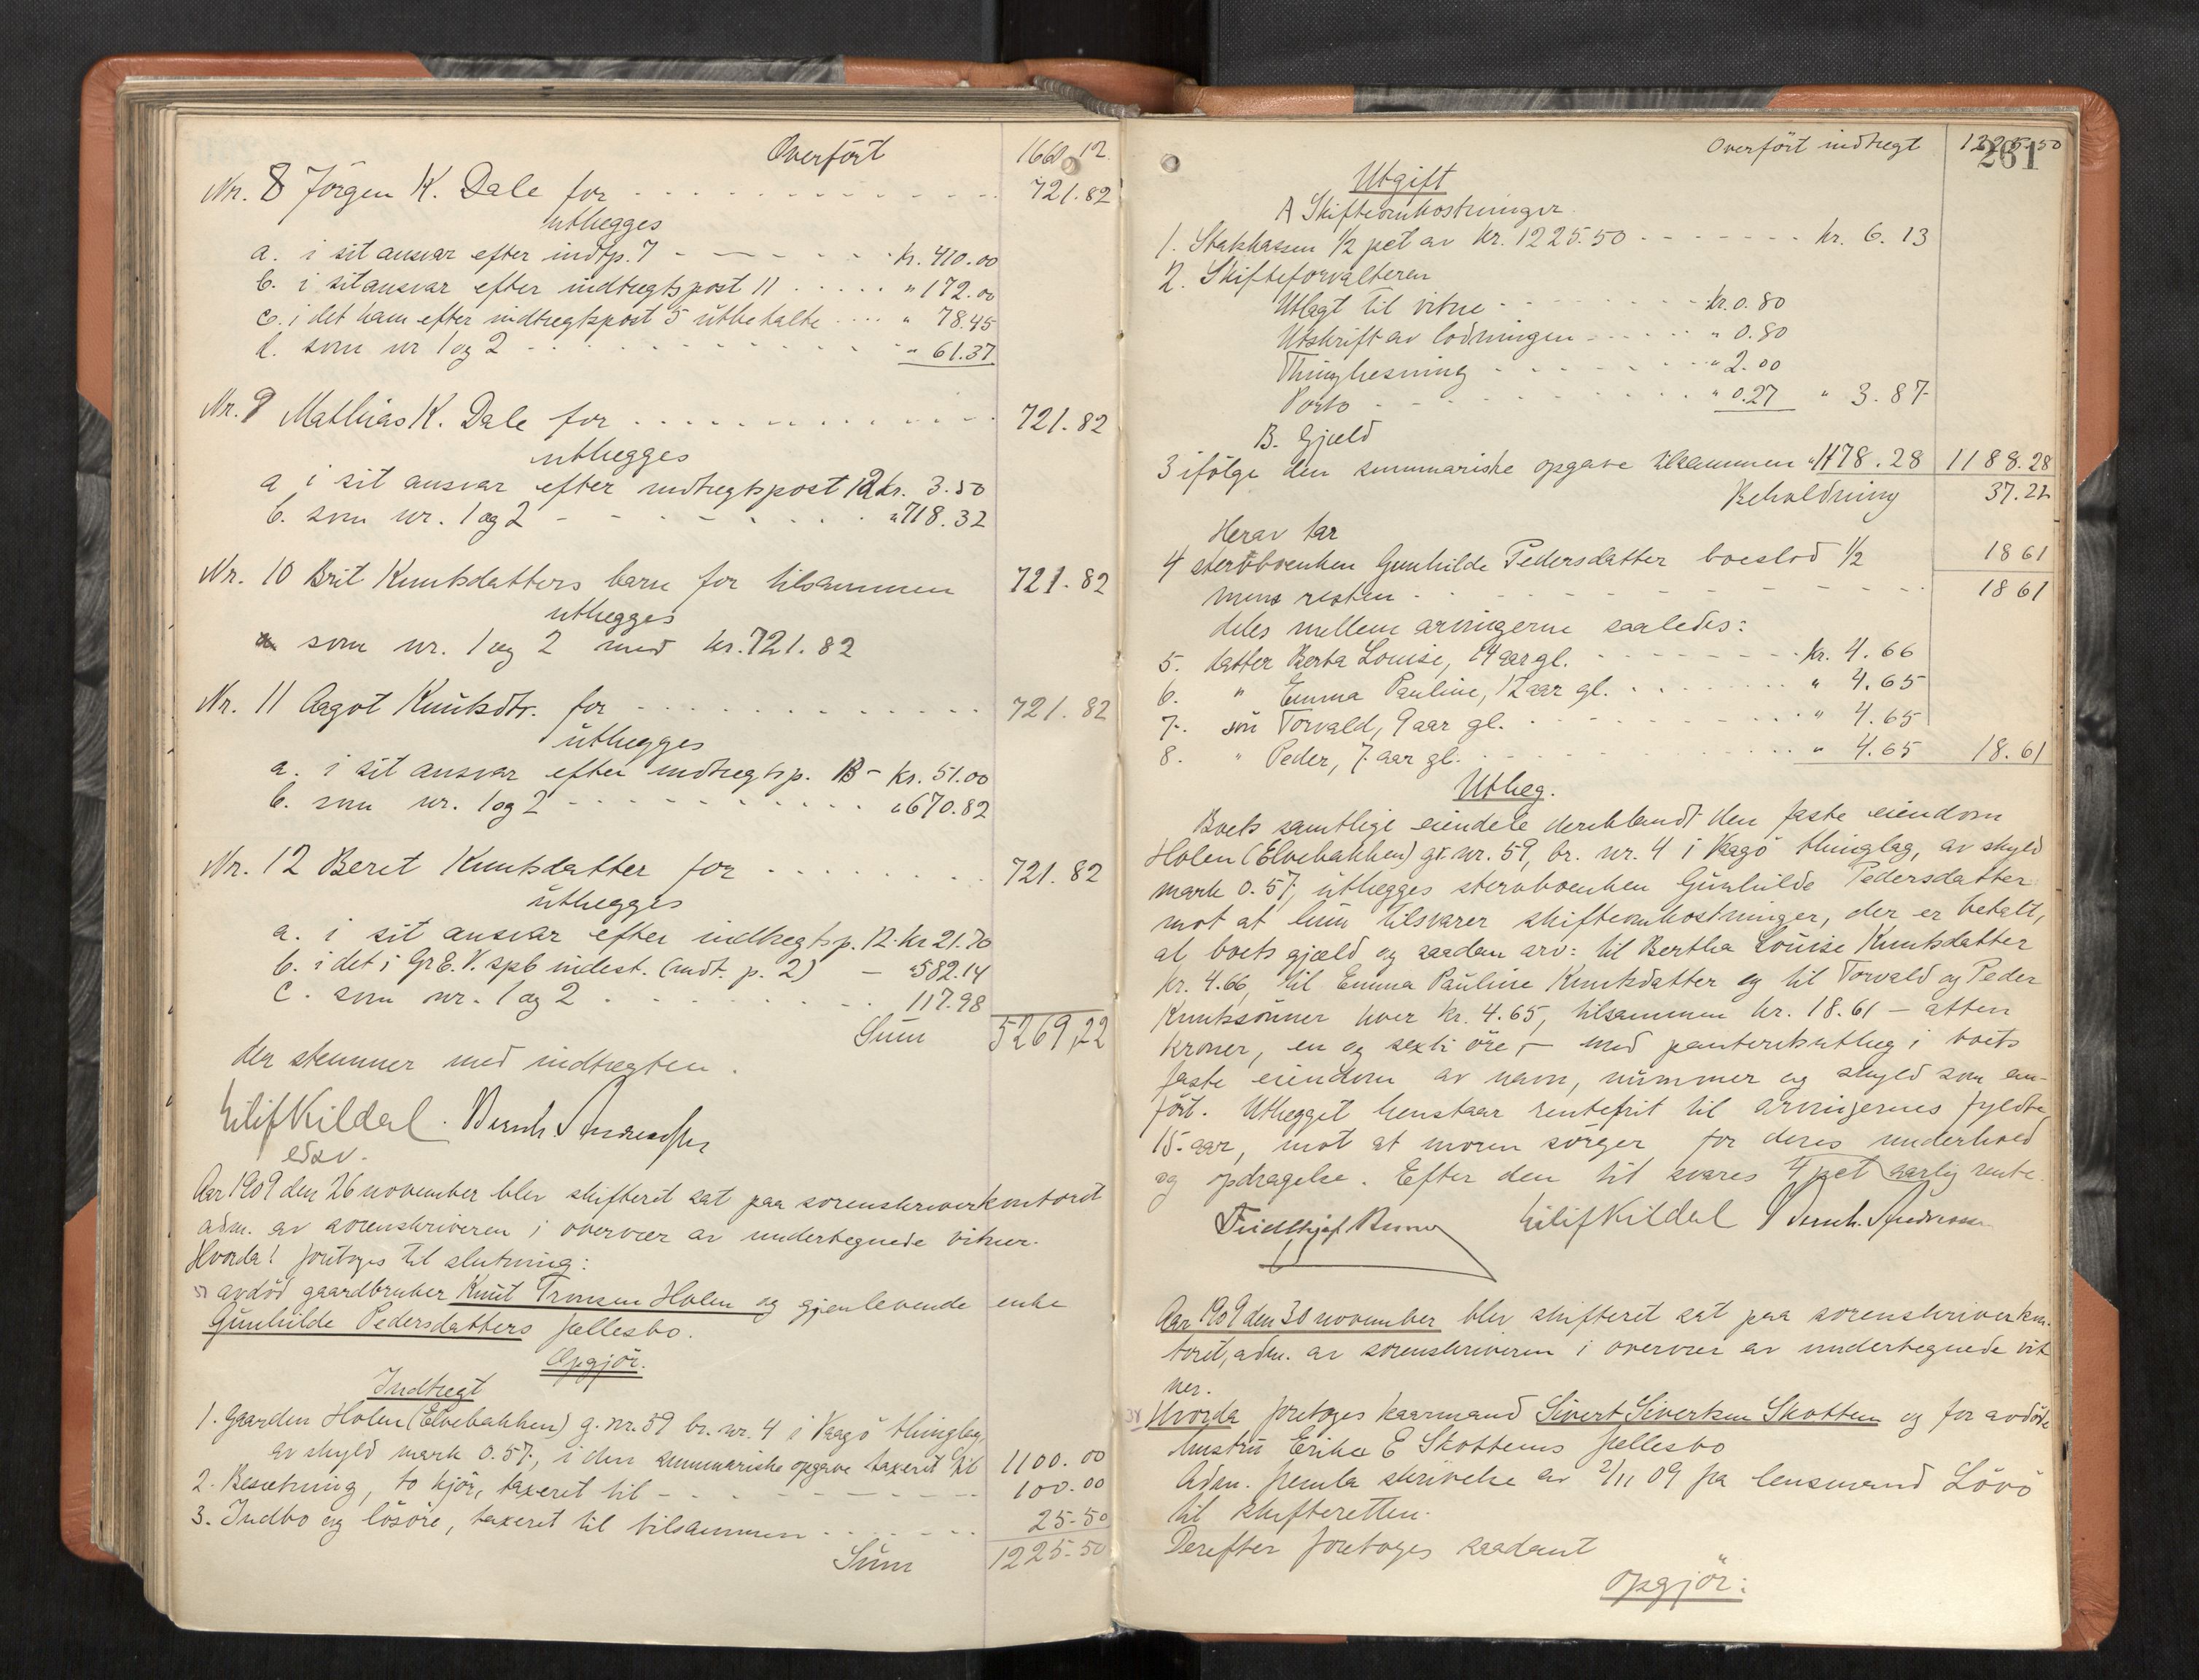 Overført 1660.12
Nr. 8 Jørgen K. Dale for 721.82
utlegges
a. i sit ansvar efter indtp. 7 - kr. 410.00
b. i sit ansvar efter indtægtspost 11 " 172.00
c. i det ham efter indtægtspost 5 utbetalte " 78.45
d. som nr 1 og 2 " 61.37
Nr. 9 Mathias K. Dale for 721.82
utlegges
a i sit ansvar efter indtægtspost 12 kr. 3.50
b. som nr. 1 og 2 - "718.32
Nr. 10 Brit Knutsdatters barn for tilsammen 721.82
utlegges
som nr. 1 og 2 med kr. 721.82
Nr. 11 Aagot Knutsdtr. for 721.82
utlegges
a. i sit ansvar efter indtægtsp. 13 - kr. 51.00
b. som nr. 1 og 2 - "670.82
Nr. 12 Beret Knutsdatter for 721.82
utlegges
a. i sit ansvar efter indtægtsp. 12. kr 21.70
b. i det i Gr E. V. spb indest. (indt. p. 2) - "582.14
c. som nr. 1 og 2 117.98
Sum 5269,22
der stemmer med indtægten.
Eilif Kildal. Bernh. Andreassen
edsv.
Aar 1909 den 26 november blev skifteret sat paa sorenskriverkontoret
adm. av sorenskriveren i overvær av undertegnede vitner.
Hvorda! foretoges til slutning:
avdød gaardbruker Knut Tronsen Holen og gjenlevende enke
Gunhilde Pedersdatters fællesbo.
Opgjør.
Indtægt
1. Gaarden Holen (Elvebakken) g. nr. 59 br. nr. 4 i Vaagø thinglag,
av skyld mark 0.57, i den summariske opgave taxeret til 1100.00
2. Besætning, to kjør, taxeret til - 100.00
3. Indbo og løsøre, taxeret til tilsammen 25.50
Sum 1225.50
Overført indtægt 1225.50
261
Utgift
A Skifteomkostninger.
1. Statskassen 1/2 pct av kr. 1225.50 - kr. 6.13
2. Skifteforvalteren
Utlagt til vitne - kr. 0.80
Utskrift av lodningen - " 0.80
Thinglæsning - " 2.00
Porto - " 0.27 " 3.87
B. Gjæld
3 ifølge den summariske opgave tilsammen "1178.28 1188.28
Beholdning 37.22
Herav tar
4 stervboenken Gunhilde Pedersdatter boeslod 1/2 18 61
mens resten - 18 61
deles mellem arvingerne saaledes:
5. datter Berta Louise, 14 aar gl. - kr. 4.66
6. " Emma Pauline, 12 aar gl. " 4.65
7. søn Torvald, 9 aar gl. - " 4.65
8. " Peder, 7 aar gl. - " 4.65 18.61
Utlæg.
Boets samtlige eiendele deriblandt den faste eiendom
Holen (Elvebakken) gr. nr. 59, br. nr. 4 i Vaagø thinglag, av skyld
mark 0.57, utlegges stervboenken Gunhilde Pedersdatter
mot at hun tilsvarer skifteomkostninger, der er betalt,
al boets gjæld og saadan arv: til Bertha Louise Knutsdatter
kr. 4.66, til Emma Pauline Knutsdatter og til Torvald og Peder
Knutssønner hver kr. 4.65, tilsammen kr. 18.61 - atten
kroner, en og sexti øre, - med panteretsutlæg i boets
faste eiendom av navn, nummer og skyld som an-
ført. Utlægget henstaar rentefrit til arvingernes fyldte
15. aar, mot at moren sørger for deres underhold
og opdragelse. Efter den tid svares 4 pct aarlig rente.
Eilif Kildal Bernh. Andreassen
Aar 1909 den 30 november blev skifteret sat paa sorenskriverkon-
toret, adm. av sorenskriveren i overvær av undertegnede vit
ner.
Hvorda foretoges kaarmand Sivert Sivertsen Skotten og for avdøde
hustru Erika E Skottens fællesbo
Adm. fremla skrivelse av 2/11 09 fra lensmand Løvø
til skifteretten.
Derefter foretoges saadant
opgjør: